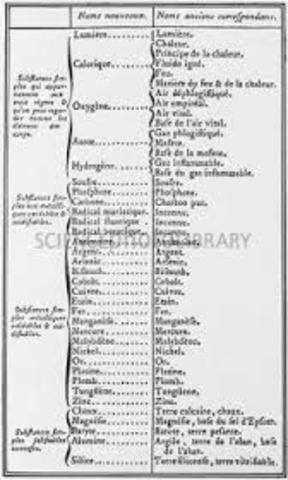 Noms nouveaux. Noms anciens correspondans.
Lumière......... Lumière.
Chaleur.
Principe de la chaleur.
Calorique......... Fluide igné.
Feu.
Matière du feu & de la chaleur.
Substances sim-
ples qui appar-
tiennent aux
trois règnes &
qu'on peut regar-
der comme les
élémens des
corps.
Air déphlogistiqué.
Oxygène......... Air empiréal.
Air vital.
Base de l'air vital.
Gaz phlogistiqué.
Azote......... Mofete.
Base de la mofete.
Hydrogène......... Gaz inflammable.
Base du gaz inflammable.
Substances sim-
ples non métalli-
ques oxidables &
acidifiables.
Soufre......... Soufre.
Phosphore......... Phosphore.
Carbone......... Charbon pur.
Radical muriatique. Inconnu.
Radical fluorique. Inconnu.
Radical boracique. Inconnu.
SCIENCEPHOTOLIBRARY
Substances sim-
ples métalliques
oxidables & aci-
difiables.
Antimoine......... Antimoine.
Argent......... Argent.
Arsenic......... Arsenic.
Bismuth......... Bismuth.
Cobolt......... Cobolt.
Cuivre......... Cuivre.
Etain......... Etain.
Fer......... Fer.
Manganèse......... Manganèse.
Mercure......... Mercure.
Molybdène......... Molybdène.
Nickel......... Nickel.
Or......... Or.
Platine......... Platine.
Plomb......... Plomb.
Tungstène......... Tungstène.
Zinc......... Zinc.
Substances sim-
ples salifiables
terreuses.
Chaux......... Terre calcaire, chaux.
Magnésie......... Magnésie, base du sel d'Epsom.
Baryte......... Barote, terre pesante.
Alumine......... Argile, terre de l'alun, base
de l'alun.
Silice......... Terre siliceuse, terre vitrifiable.